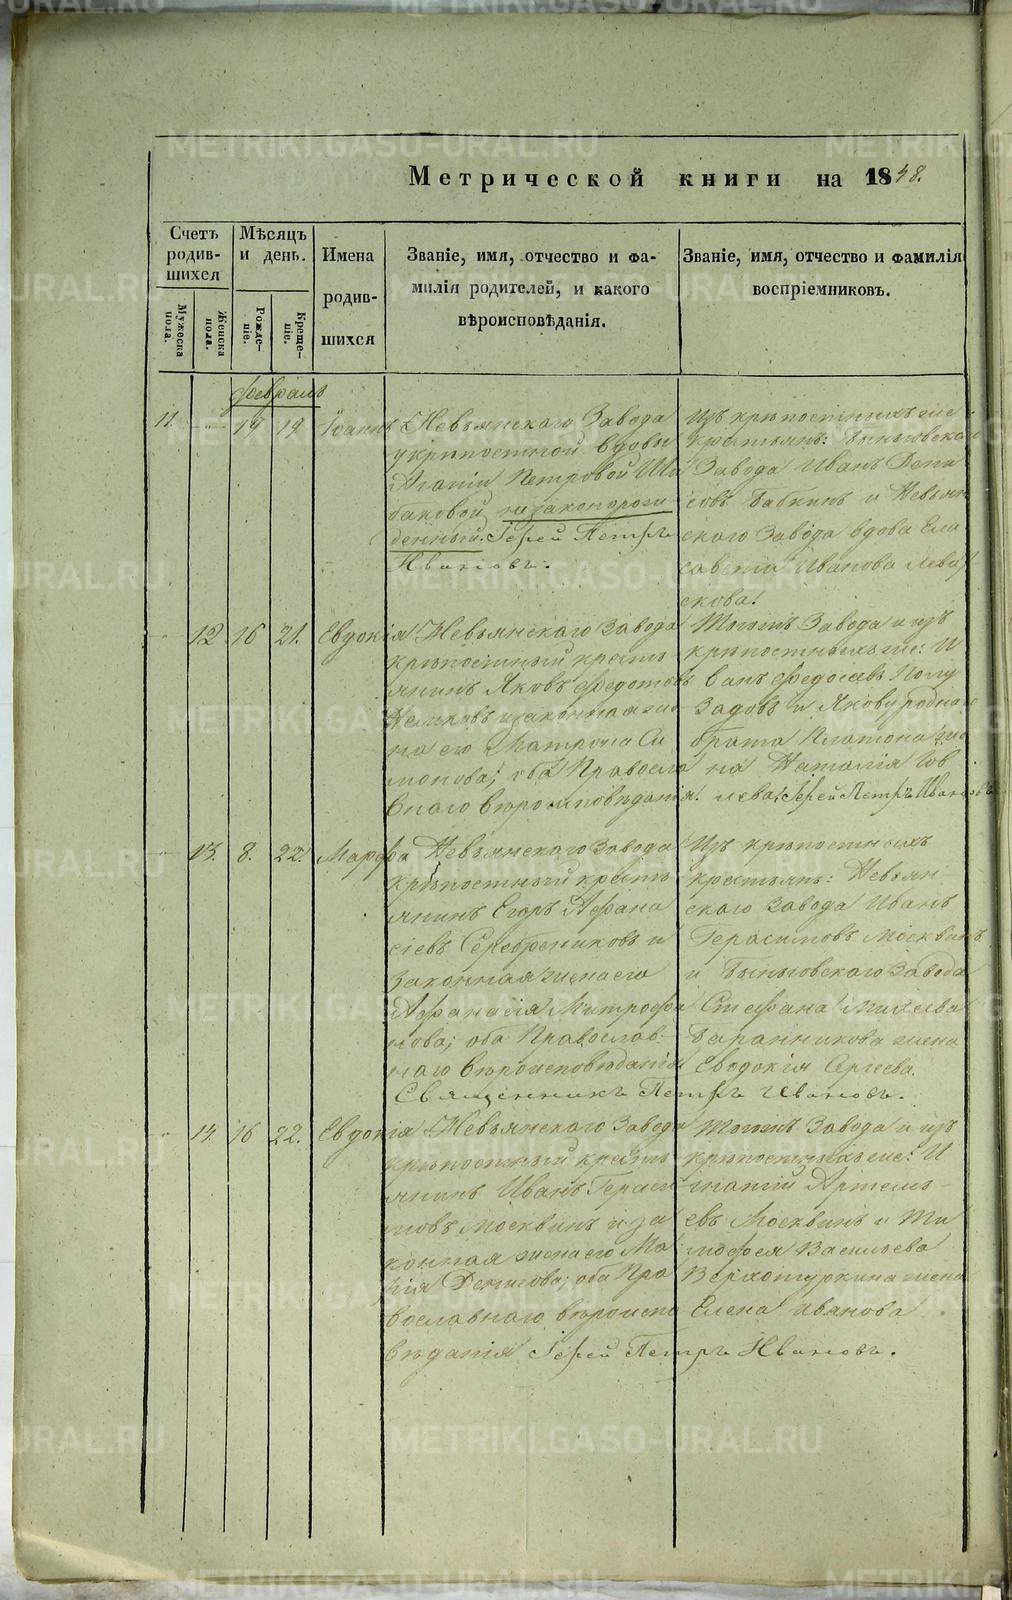 Метрической книги на 1848.
Счетъ родившихся
Мѣсяцъ и день.
Имена родившихся
Званіе, имя, отчество и фамилія родителей, и какого вѣроисповѣданія.
Званіе, имя, отчество и фамилія воспріемниковъ.
Мужеска пола.
Женска пола.
Рожденіе.
Крещеніе.
февраль
11. 19 19 Іоаннъ
Невьянскаго Завода
у крѣпостной вдовы
Агапіи Петровой Ши
баковой, незаконорож
денный. Іерей Петръ
Ивановъ.
Изъ крѣпостныхъ же
крестьянъ: Быньговскаго
Завода Иванъ Дени
совъ Бабкинъ и Невьян
скаго Завода вдова Ели
савета Иванова
скова.
12 16 21. Евдокія
Невьянскаго Завода
крѣпостный кресть
янинъ Яковъ Федотовъ
и законная же
на его Матрона Си
монова; оба Правосла
внаго вѣроисповѣданія.
Тогожъ Завода и изъ
крѣпостныхъ же: И
ванъ Федосѣевъ Полу
задовъ и Якову роднаго
брата Платона же
на Наталія Іов
лева. Іерей Петръ Ивановъ
13. 8. 22. Марфа
Невьянскаго Завода
крѣпостный кресть
янинъ Егоръ Афана
сіевъ Серебрениковъ и
законная жена его
Афанасія Митрофа
нова; оба Православ
наго вѣроисповѣданія
Священникъ Петръ Ивановъ.
Изъ крѣпостныхъ
крестьянъ: Невьян
скаго Завода Иванъ
Герасимовъ Москвинъ
и Быньговскаго Завода
Стефана Михеева
Баранникова жена
Евдокія Сергеева.
14. 16 22. Евдокія
Невьянскаго Завода
крѣпостный кресть
янинъ Иванъ Гераси
мовъ Москвинъ и за
конная жена его Ма
рія Денисова; оба Пра
вославнаго вѣроиспо
вѣданія Іерей Петръ Ивановъ.
Тогожъ Завода и изъ
крѣпостныхъ же: И
гнатій Артемь
евъ Москвинъ и Ти
мофея Васильева
Верхотуркина жена
Елена Иванова
METRIKI.GASO-URAL.RU